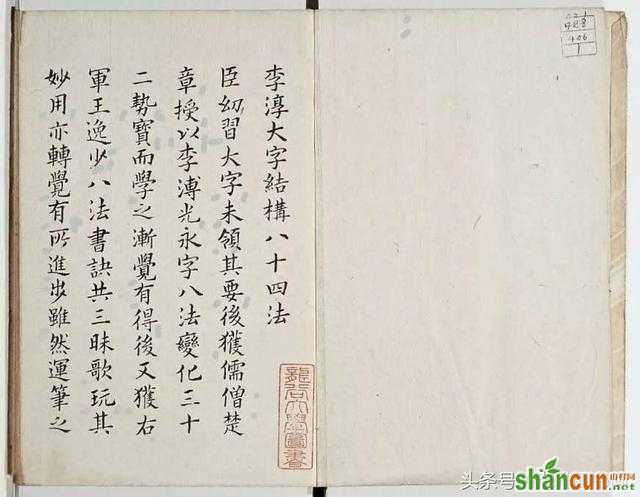 李淳大字結構八十四法
臣幼習大字未領其要後獲儒僧楚
章授以李溥光永字八法變化三十
二勢寶而學之漸覺有得後又獲右
軍王逸少八法書訣共三昧歌玩其
妙用亦轉覺有所進步雖然運筆之
龍谷大學圖書
406
1
头条号
shancun
.net